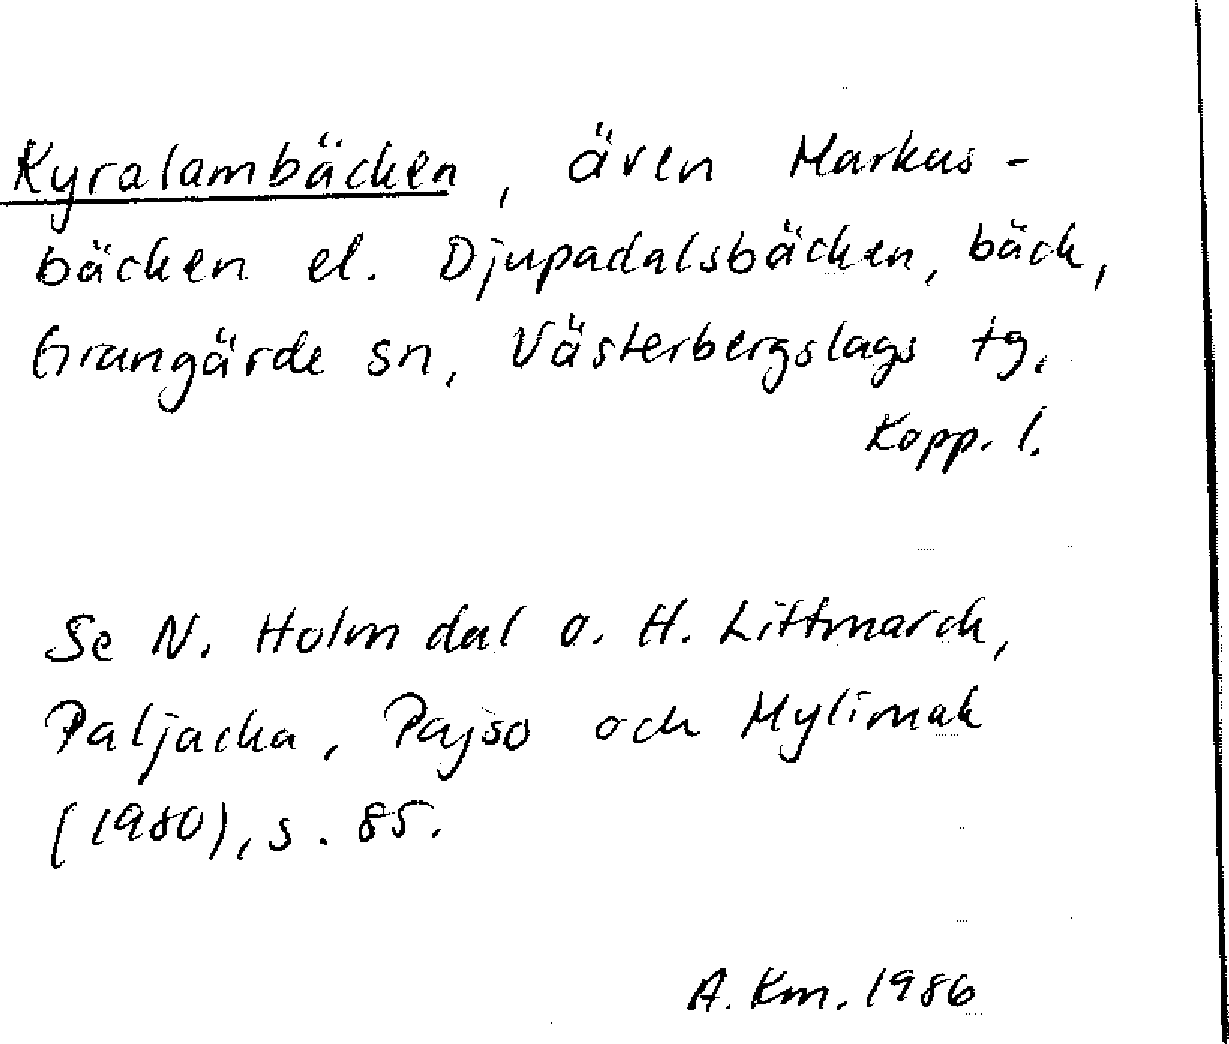 Kyralambäcken, även Markus-
bäcken el. Djupadalsbäcken, bäck,
Grangärde sn, Västerbergslags tg.
Kopp. l.
Se N. Holmdal o. H. Littmarck,
Paljacka, Pajso och Mylimak
(1980), s. 85.
A. Km. 1986